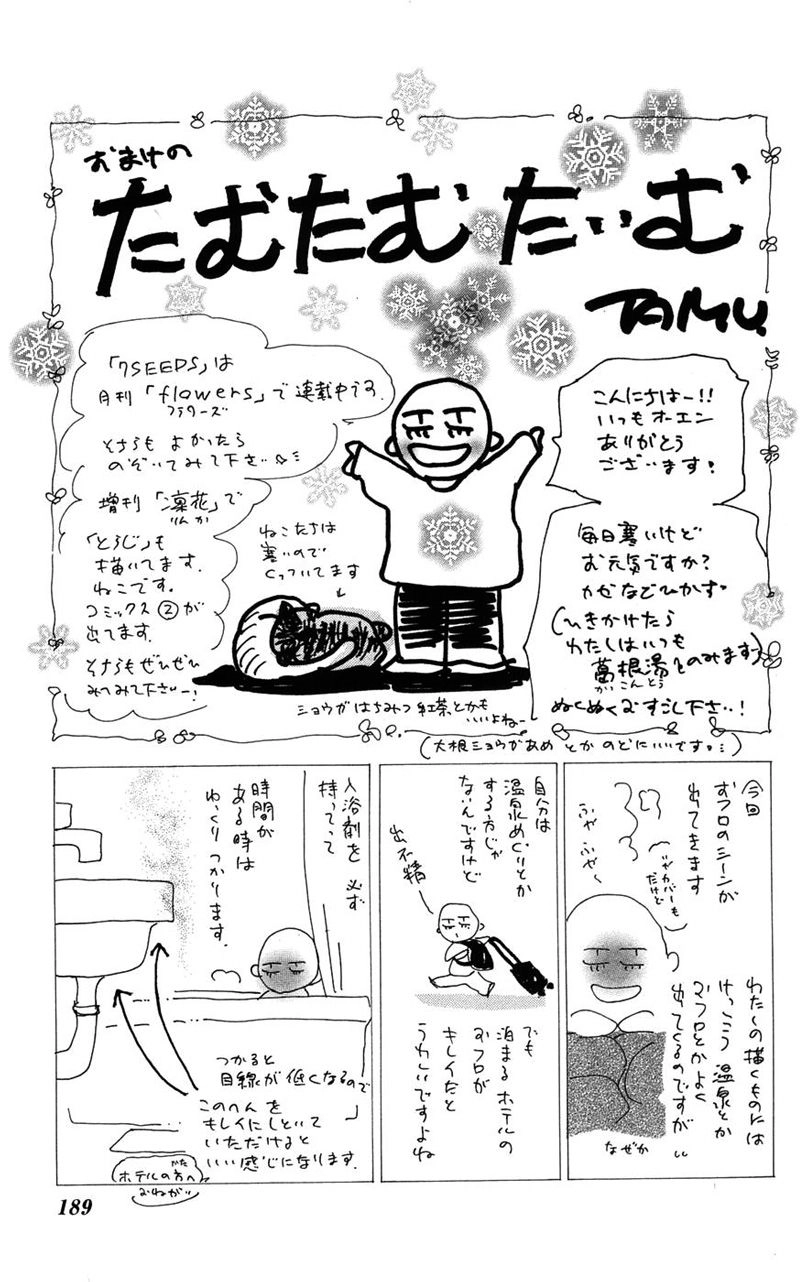 おまけの
たむたむたいむ
TAMU.
こんにちはー!!
いつもオーエン
ありがとう
ございます!
毎日寒いけど
お元気ですか?
かぜなどひかず
(ひきかけたら
わたしはいつも
葛根湯をのみます)
かっこんとう
ぬくぬくおすごし下さい!
「7SEEDS」は
月刊「flowers」で連載中です。
フラワーズ
そちらもよかったら
のぞいてみて下さい
増刊「凛花」で
りんか
「とらじ」も
描いてます。
ねこです。
コミックス②が
出てます。
そちらもぜひぜひ
みてみて下さいー!
ねこたちは
寒いので
くっついてます
ショウガはちみつ紅茶とかも
いいよねー
(大根ショウガあめとかのどにいいです)
今回
おフロのシーンが
出てきます
いやカバーも
だけど
ふや ふや〜
わたしの描くものには
けっこう温泉とか
おフロとかよく
出てくるのですが
なぜか
自分は
温泉めぐりとか
する方じゃ
ないんですけど
出不精
でも
泊まるホテルの
おフロが
キレイだと
うれしいですよね
入浴剤を必ず
持ってって
時間が
ある時は
ゆっくりつかります。
つかると
目線が低くなるので
このへんを
キレイにしといて
いただけると
いい感じになります。
ホテルの方へ
かた
おねがい
189